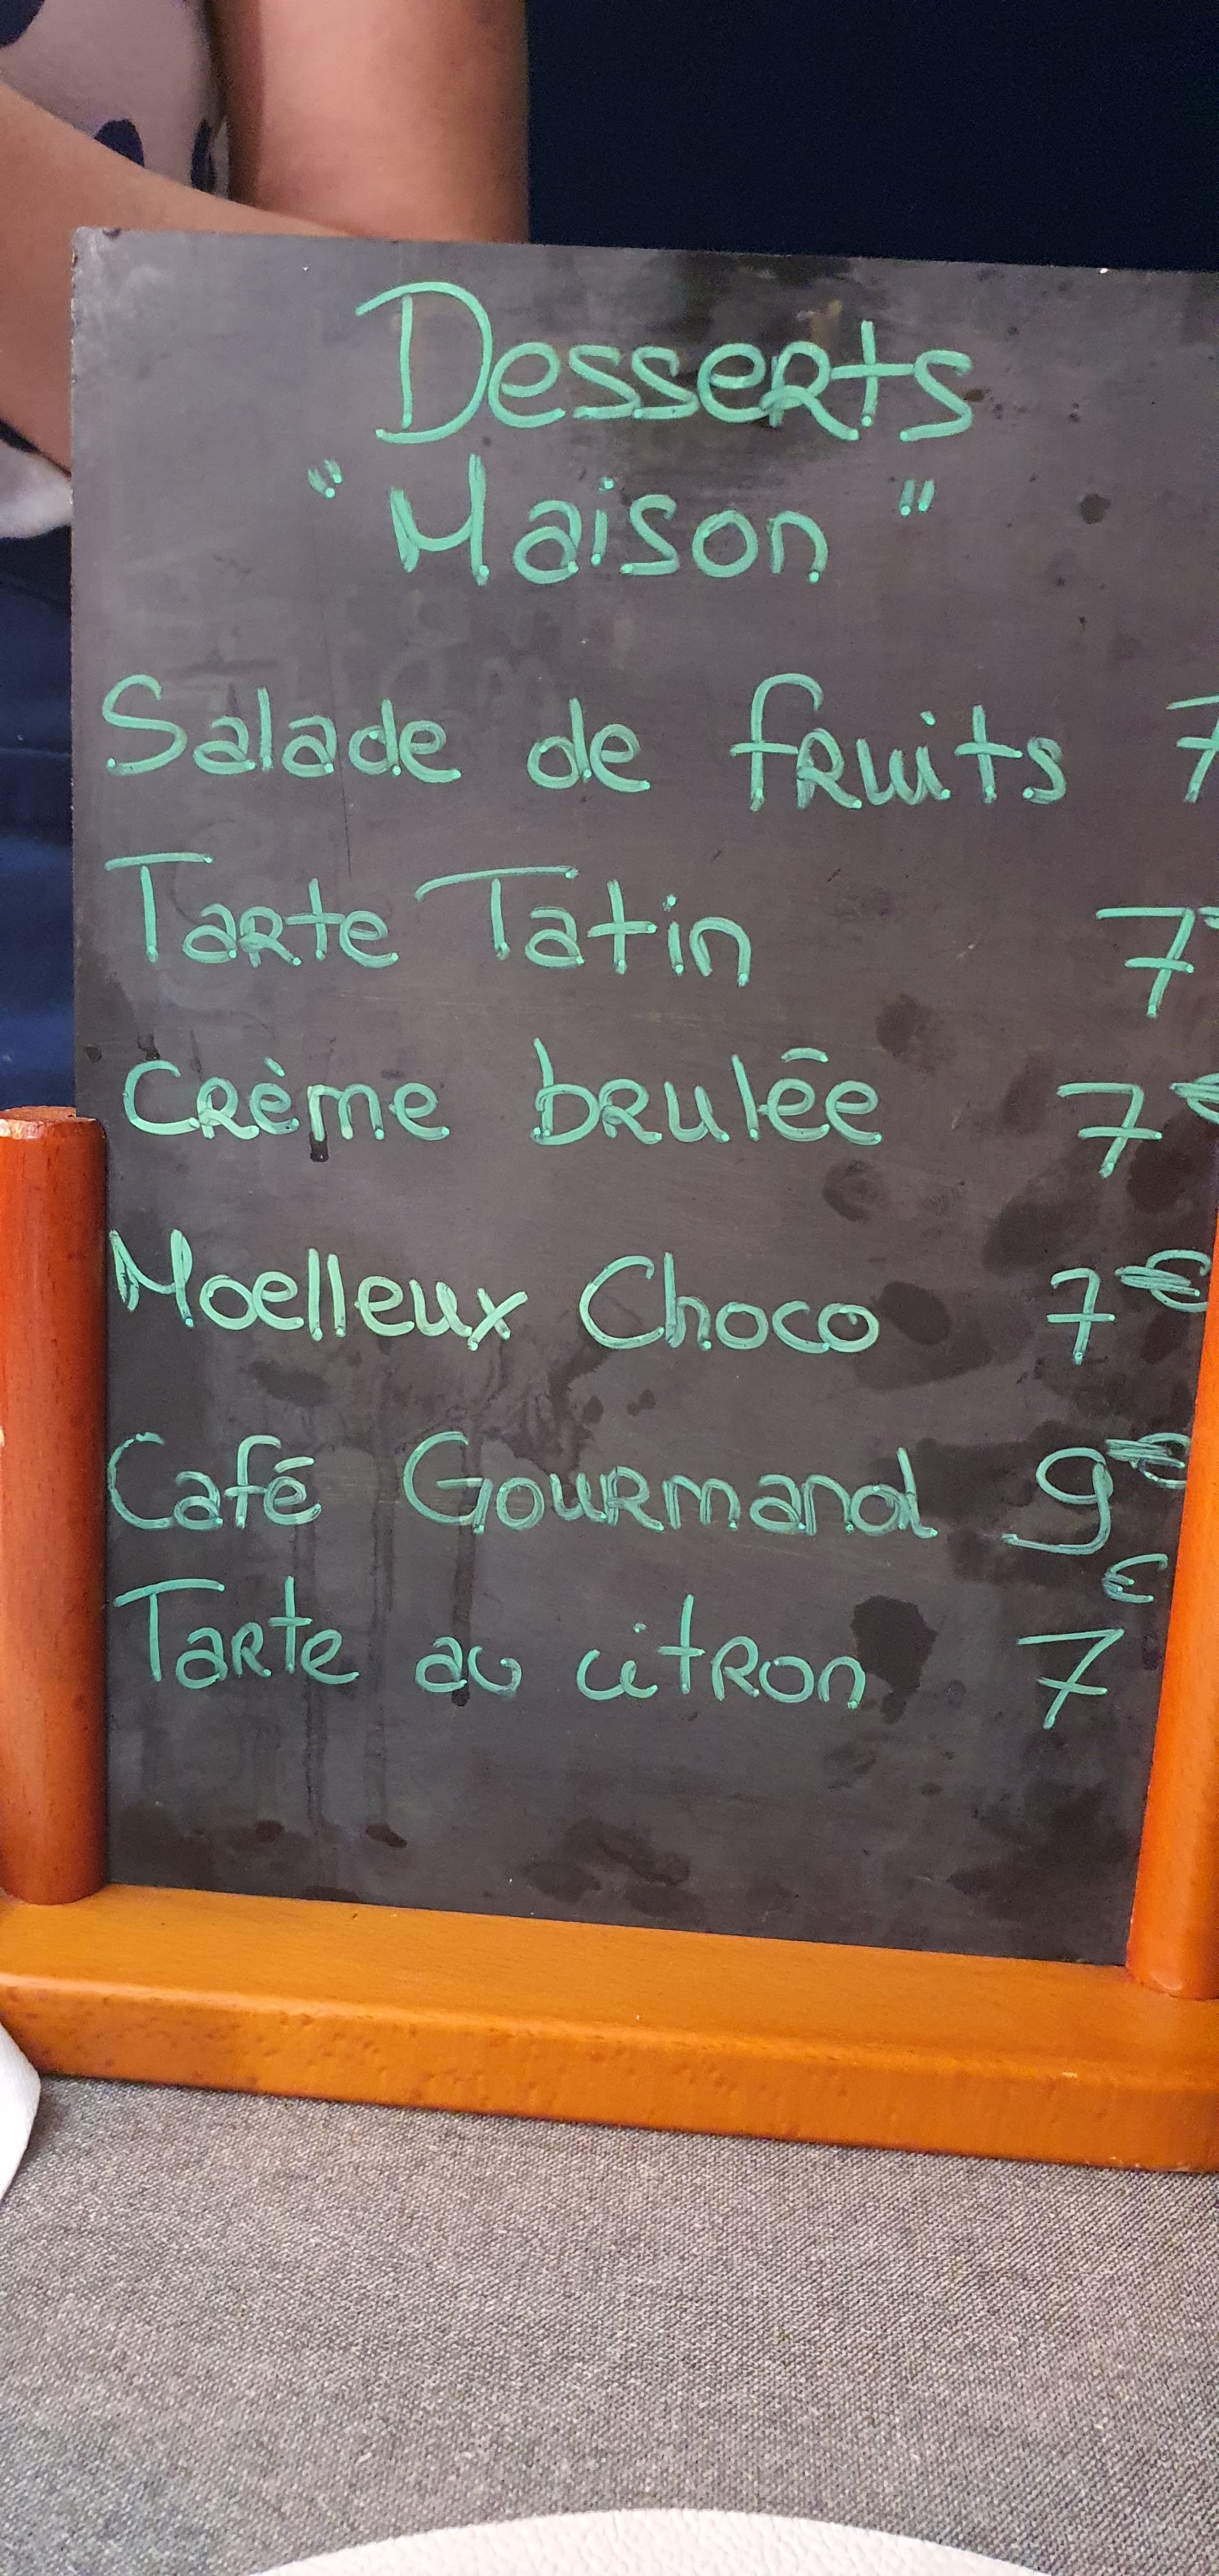 Desserts
"Maison"
Salade de fruits 7
Tarte Tatin 7
Crème brulée 7€
Moelleux Choco 7€
Café Gourmand 9€
Tarte au citron 7€